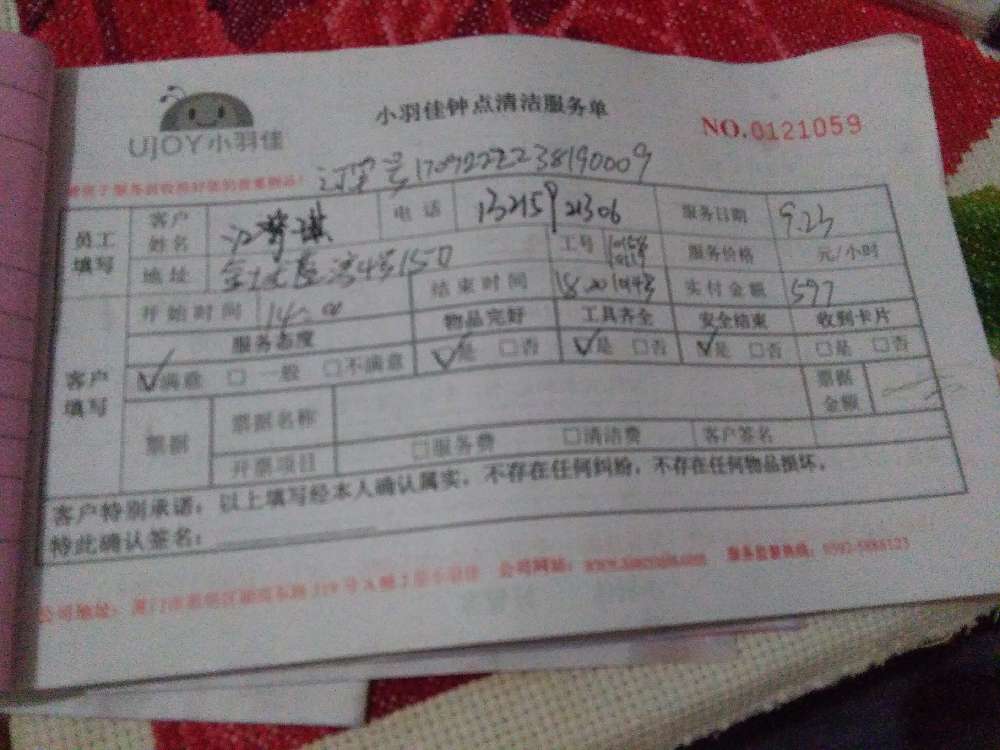 小羽佳钟点清洁服务单
NO.0121059
UJOY小羽佳
订单号1709222238190009
员工填写 客户姓名 江梦琪 电话 13215921306 服务日期 9.23
地址 工号 服务价格 元/小时
客户填写 开始时间 14:00 结束时间 18:20 实付金额 597
服务态度 物品完好 工具齐全 安全结束 收到卡片
√满意 □一般 □不满意 √是 □否 √是 □否 √是 □否 □是 □否
票据 票据名称 票据金额
开票项目 □服务费 □清洁费 客户签名
客户特别承诺：以上填写经本人确认属实，不存在任何纠纷，不存在任何物品损坏。
特此确认签名：
公司地址： 公司网站： 服务监督热线：